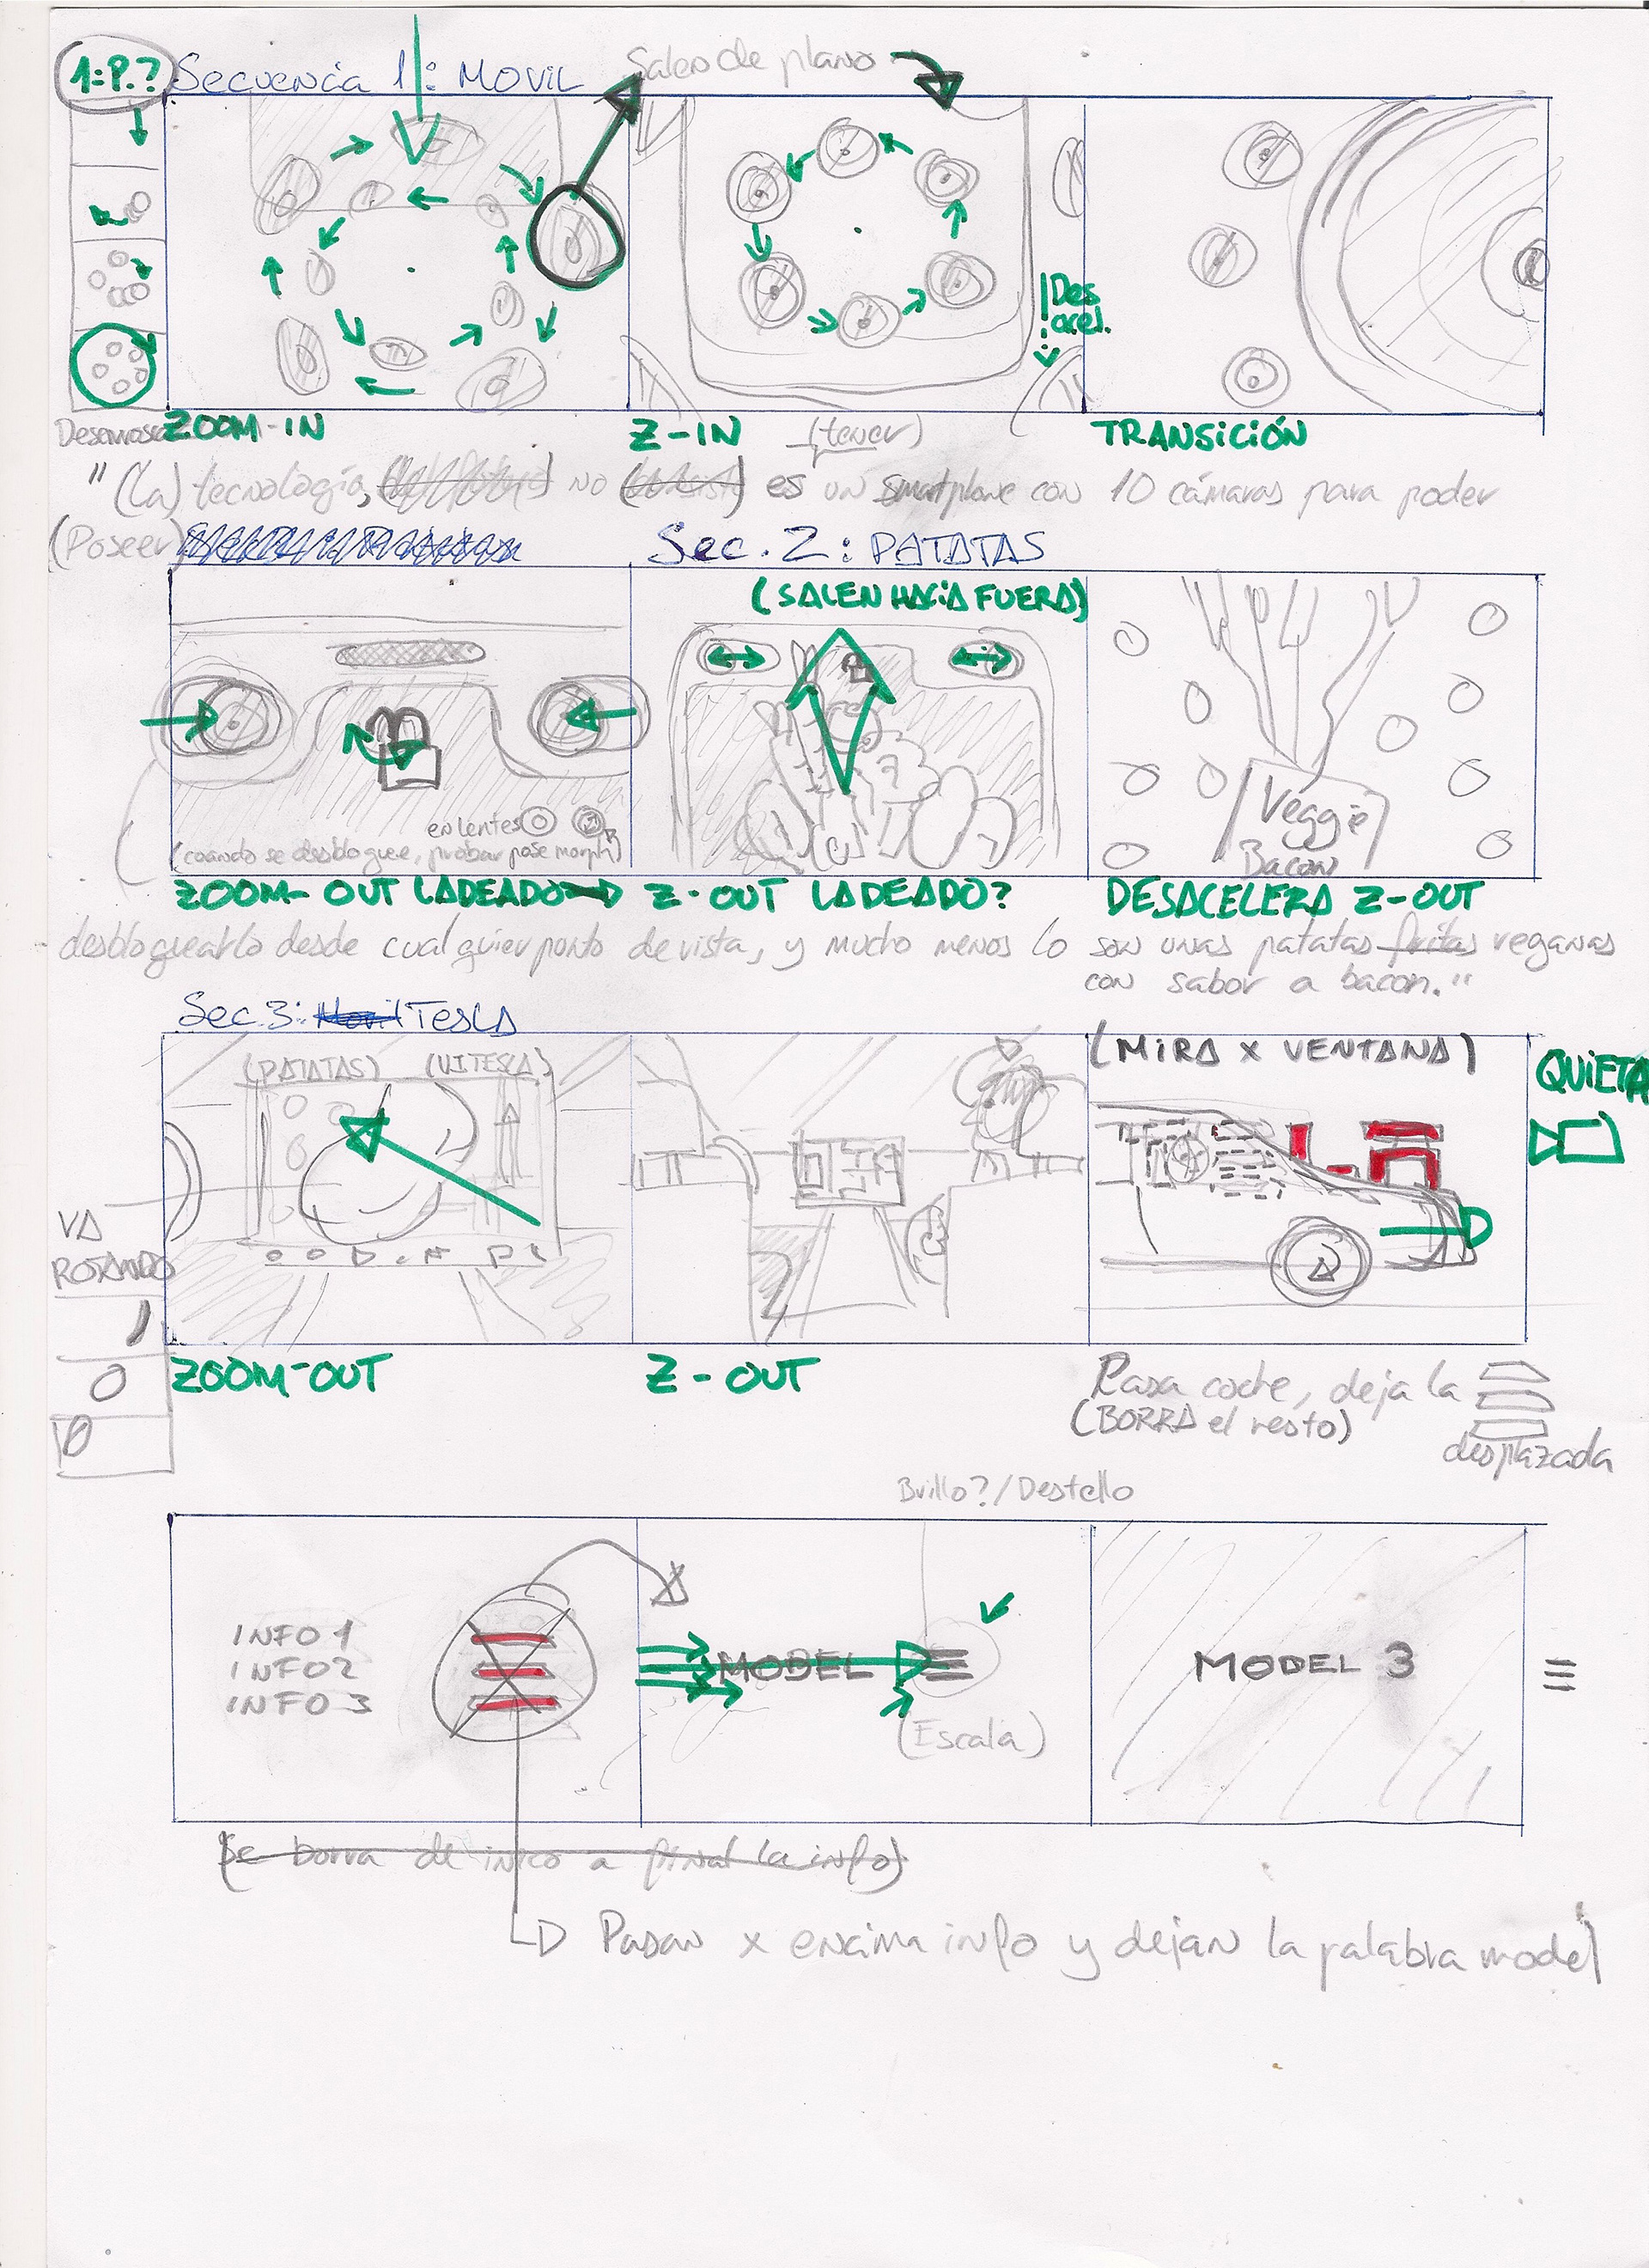 1:P.? Secuencia 1: MOVIL Salen de plano
!Des
acel.
ZOOM-IN Z-IN (tener) TRANSICIÓN
"(La) tecnología, no es un smartphone con 10 cámaras para poder
(Poseer) Sec. 2: PATATAS
(SALEN HACIA FUERA)
Veggie
Bacon
en lentes
(cuando se desbloquee, probar pose morph)
ZOOM-OUT LADEADO Z-OUT LADEADO? DESACELERA Z-OUT
desbloquearlo desde cualquier punto de vista, y mucho menos lo son unas patatas fritas veganas
con sabor a bacon."
Sec.3: Movil TESLA
(PATATAS) (UI TESLA) (MIRA X VENTANA)
QUIETA
VA
ROTANDO
ZOOM-OUT Z-OUT
Pasa coche, deja la
(BORRA el resto)
desplazada
Brillo?/Destello
INFO 1
INFO 2
INFO 3
MODEL
MODEL 3
(Escala)
(Se borra de inico a final la info)
Pasan x encima info y dejan la palabra model